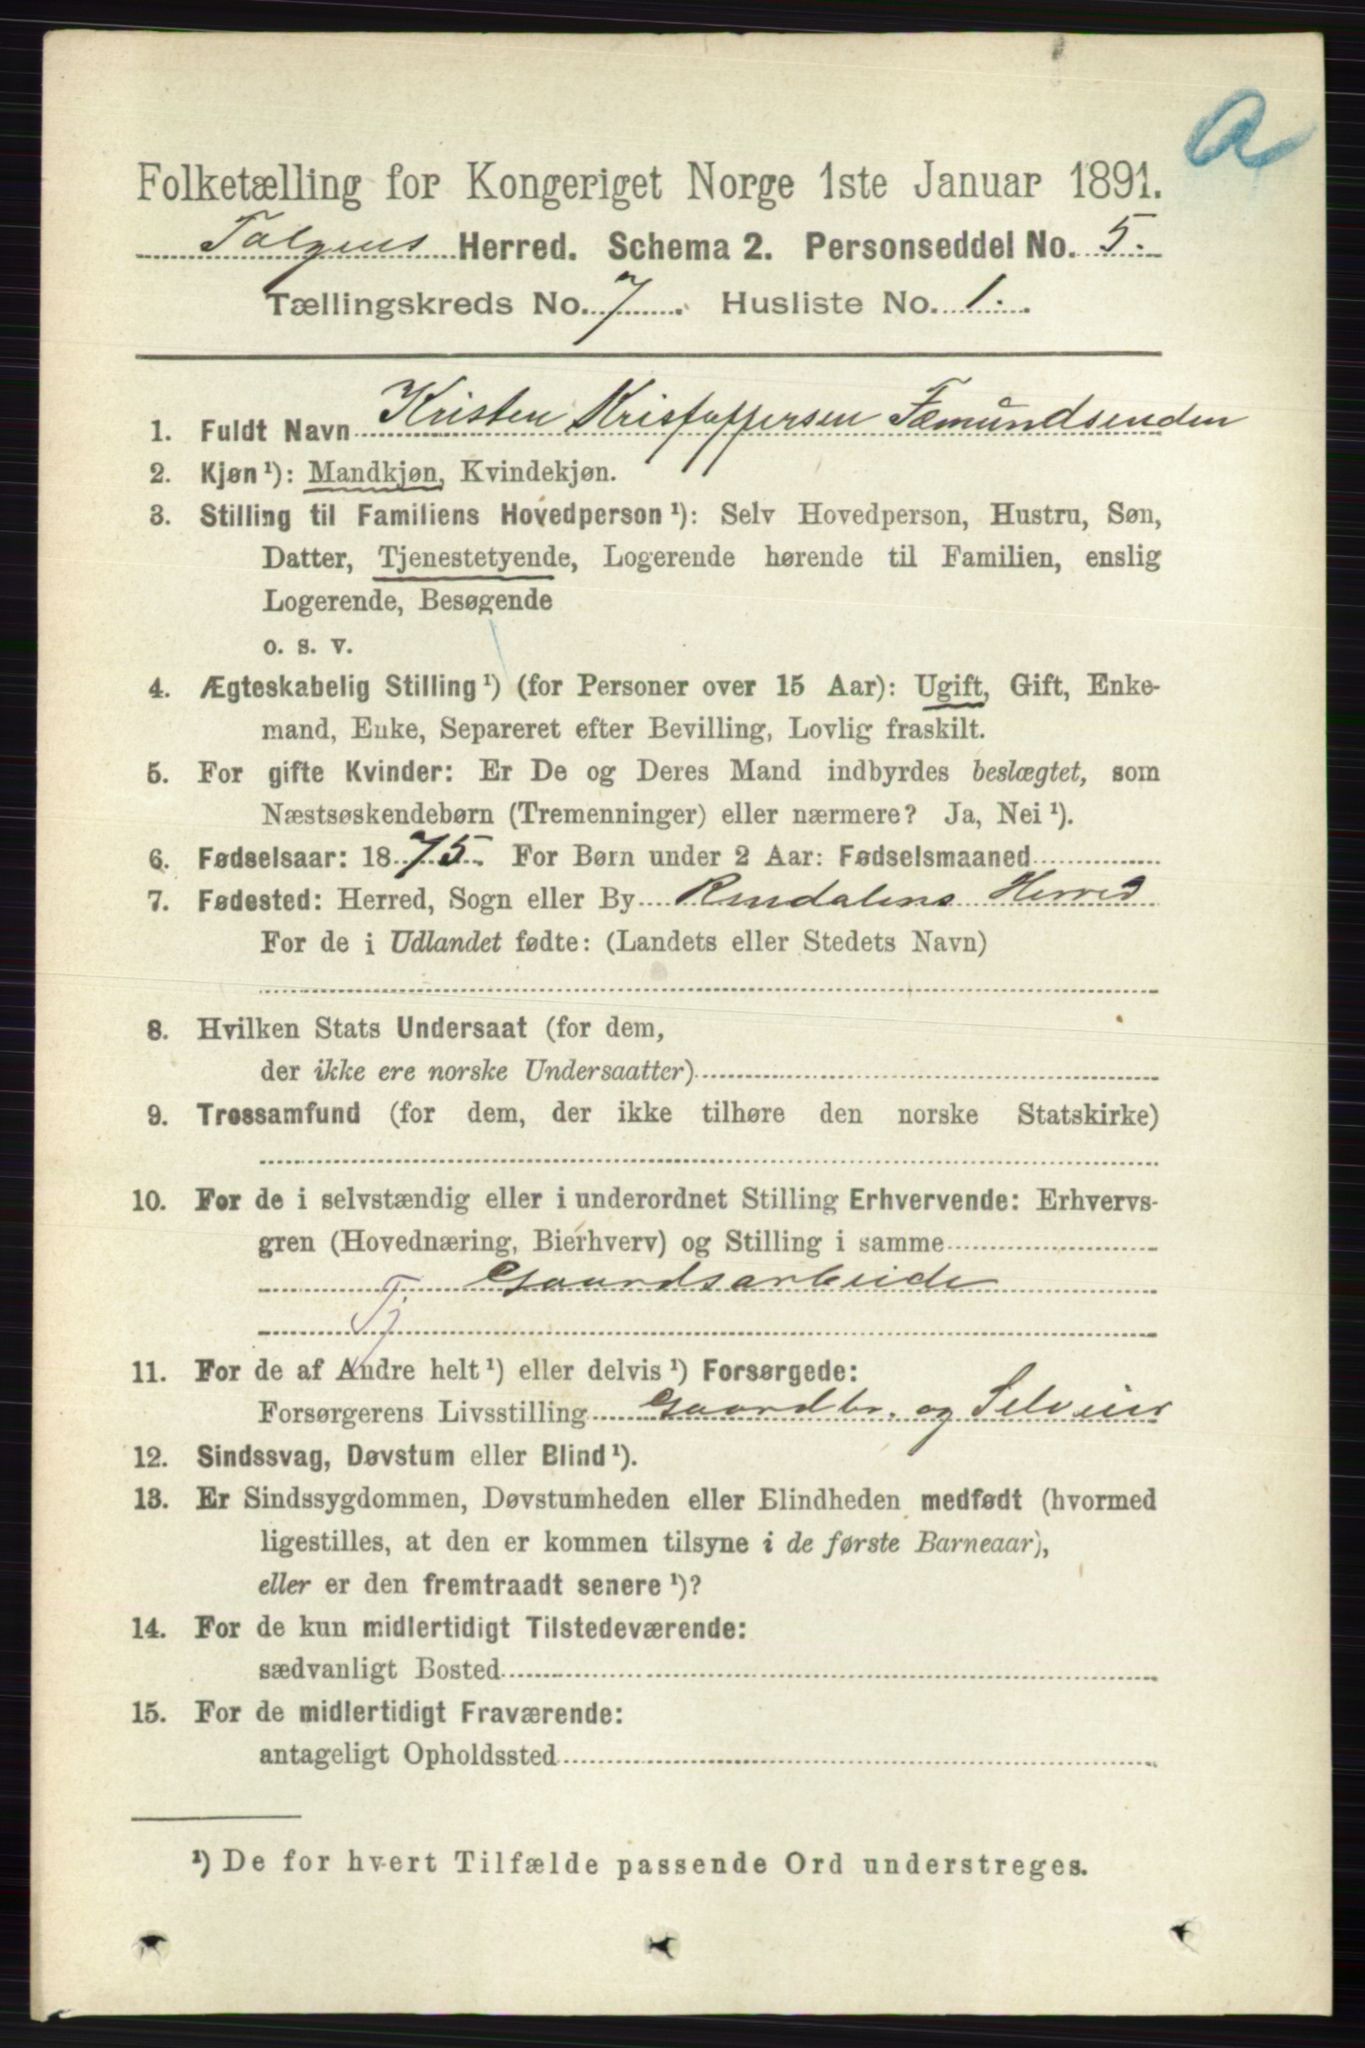 a
Folketælling for Kongeriget Norge 1ste Januar 1891.
Tolgens Herred. Schema 2. Personseddel No. 5.
Tællingskreds No. 7. Husliste No. 1.
1. Fuldt Navn Kristen Kristoffersen Fæmundsenden
2. Kjøn¹): Mandkjøn, Kvindekjøn.
3. Stilling til Familiens Hovedperson¹): Selv Hovedperson, Hustru, Søn,
Datter, Tjenestetyende, Logerende hørende til Familien, enslig
Logerende, Besøgende
o. s. v.
4. Ægteskabelig Stilling¹) (for Personer over 15 Aar): Ugift, Gift, Enke-
mand, Enke, Separeret efter Bevilling, Lovlig fraskilt.
5. For gifte Kvinder: Er De og Deres Mand indbyrdes beslægtet, som
Næstsøskendebørn (Tremenninger) eller nærmere? Ja, Nei¹).
6. Fødselsaar: 1875. For Børn under 2 Aar: Fødselsmaaned
7. Fødested: Herred, Sogn eller By Rendalens Herred
For de i Udlandet fødte: (Landets eller Stedets Navn)
8. Hvilken Stats Undersaat (for dem,
der ikke ere norske Undersaatter)
9. Trossamfund (for dem, der ikke tilhøre den norske Statskirke)
10. For de i selvstændig eller i underordnet Stilling Erhvervende: Erhvervs-
gren (Hovednæring, Bierhverv) og Stilling i samme
Gaardsarbeide
Tj
11. For de af Andre helt¹) eller delvis¹) Forsørgede:
Forsørgerens Livsstilling Gaardbr. og Selveier
12. Sindssvag, Døvstum eller Blind¹).
13. Er Sindssygdommen, Døvstumheden eller Blindheden medfødt (hvormed
ligestilles, at den er kommen tilsyne i de første Barneaar),
eller er den fremtraadt senere¹)?
14. For de kun midlertidigt Tilstedeværende:
sædvanligt Bosted
15. For de midlertidigt Fraværende:
antageligt Opholdssted
¹) De for hvert Tilfælde passende Ord understreges.